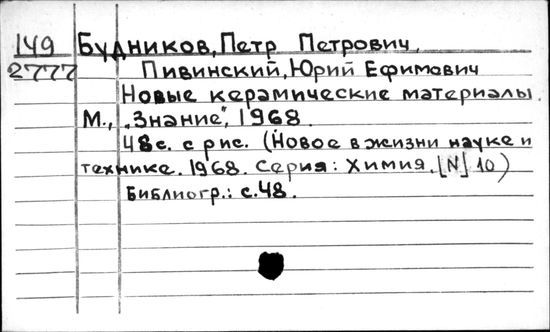 149 Будников, Петр Петрович,
2777 Пивинский, Юрий Ефимович
Новые керамические материалы.
М., "Знание", 1968.
48с. с рис. (Новое в жизни науке и
технике. 1968. Серия: Химия. [N] 10)
Библиогр.: с.48.